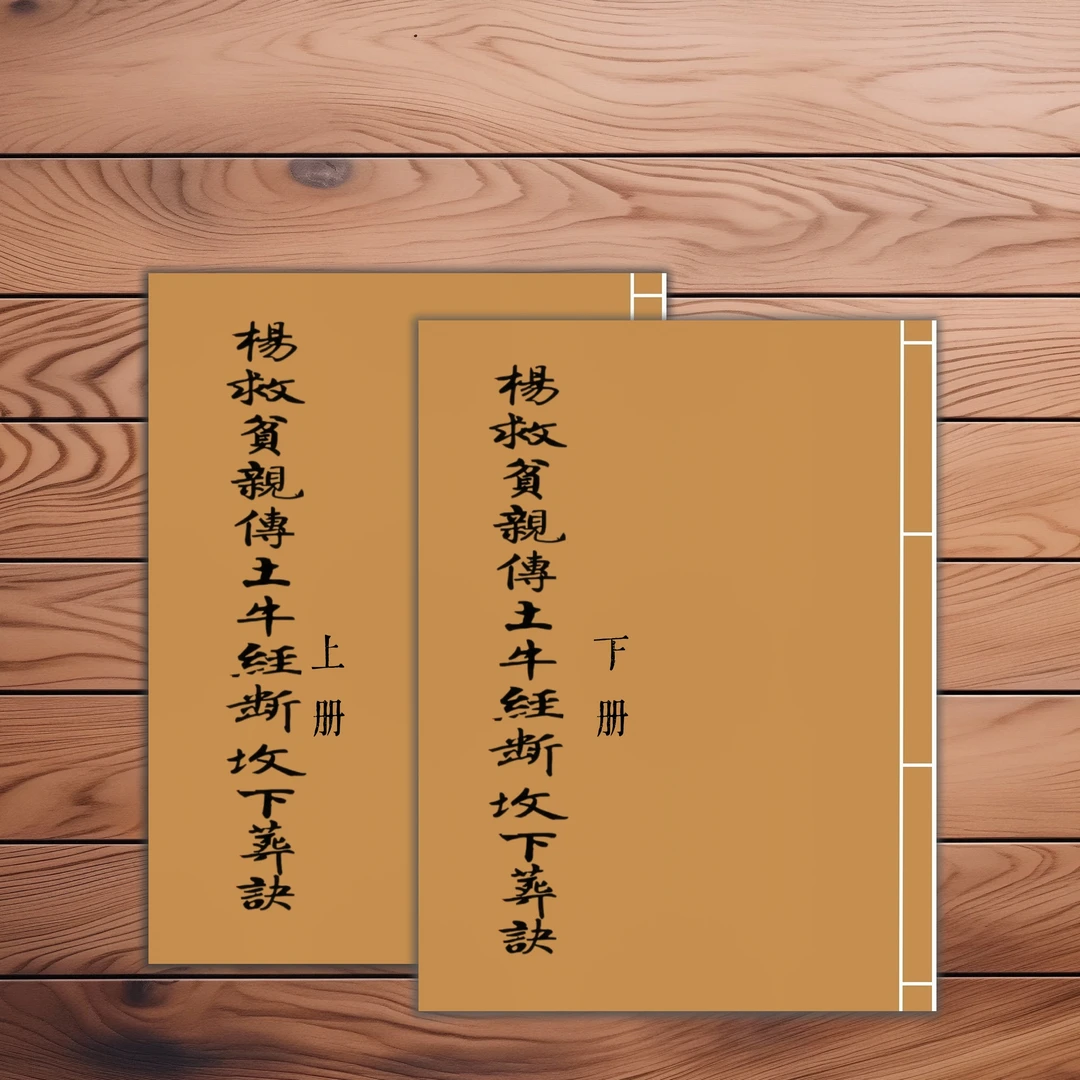 楊救貧親傳土牛經斷坟下葬訣
上册
楊救貧親傳土牛經斷坟下葬訣
下册